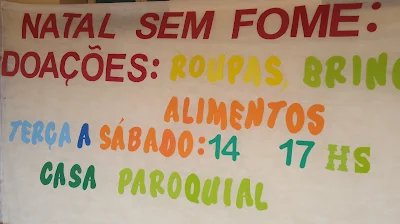 NATAL SEM FOME:
DOAÇÕES: ROUPAS, BRINQ
ALIMENTOS
TERÇA A SÁBADO: 14 17 HS
CASA PAROQUIAL